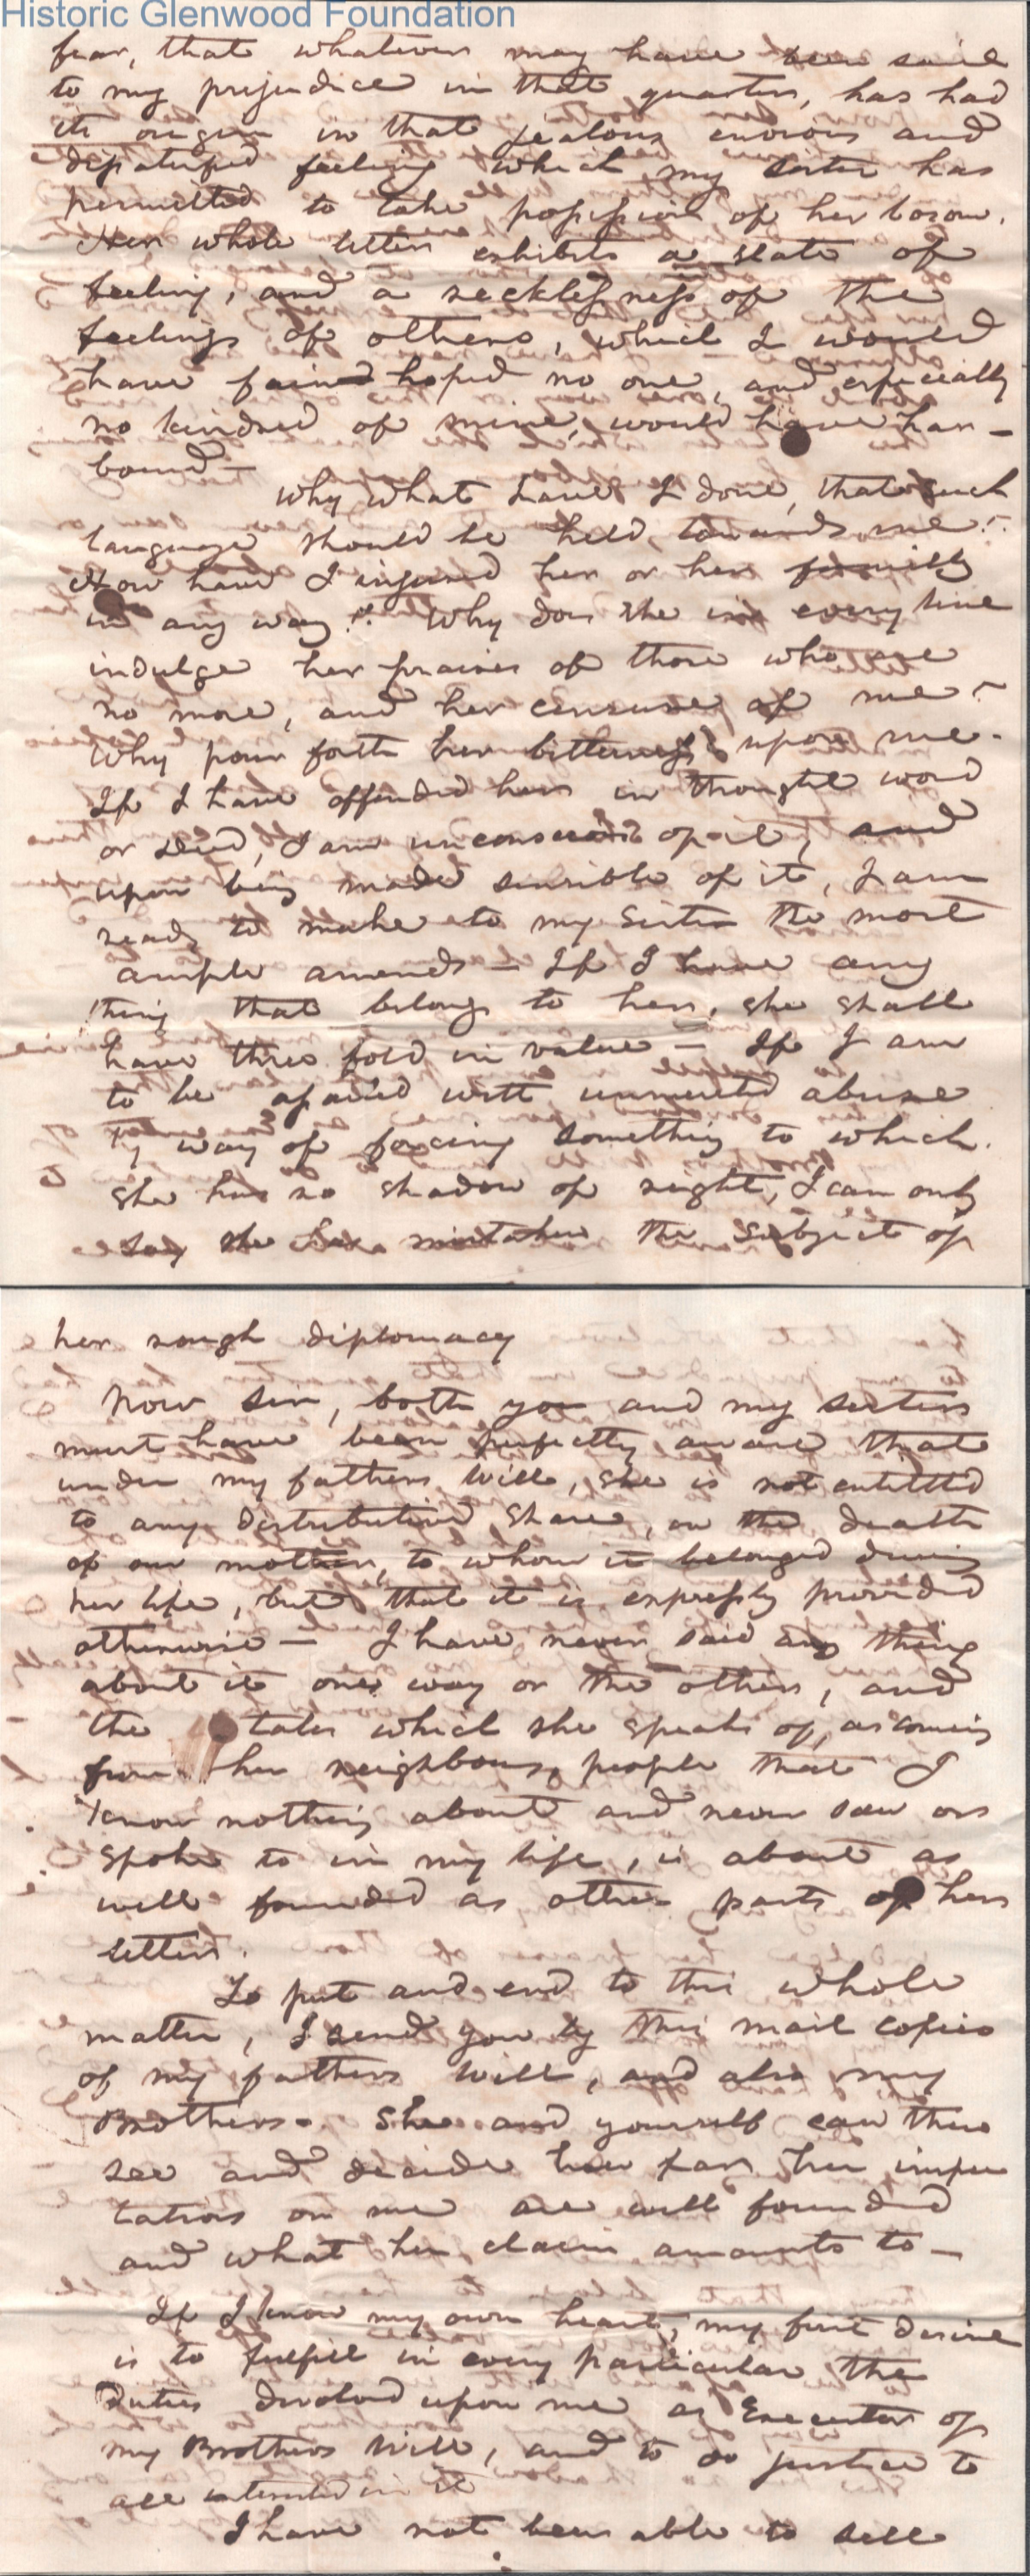 Historic Glenwood Foundation
fear, that whatever may have been said
to my prejudice in that quarter, has had
its origin in that jealous envious and
dissatisfied feeling which my sister has
permitted to take possession of her bosom.
Her whole letter exhibits a state of
feeling, and a recklessness of the
feelings of others, which I would
have fain hoped no one, and especially
no kindred of mine, would have har-
bound—
Why what have I done, that such
language should be held towards me?
How have I injured her or her family
in any way? Why does she in every line
indulge her praises of those who are
no more, and her censure of me?
Why pour forth her bitterness upon me.
If I have offended her in thought word
or deed, I am unconscious of it, and
upon being made sensible of it, I am
ready to make to my Sister the most
ample amends — If I have any
thing that belongs to her, she shall
have three fold in value — If I am
to be assailed with unmerited abuse
by way of forcing something to which
she has no shadow of right, I can only
say she has mistaken the subject of
her rough diplomacy
Now Sir, both you and my sister
must have been perfectly aware that
under my fathers Will, she is not entitled
to any distributive Share, on the death
of our mother, to whom it belonged during
her life, but that it is expressly provided
otherwise — I have never said any thing
about it one way or the other, and
the tales which she speaks of, as coming
from her neighbours, people that I
know nothing about and never saw or
spoke to in my life, is about as
well founded as other parts of her
letter.
To put and end to this whole
matter, I send you by this mail copies
of my fathers Will, and also my
Brothers. She and yourself can then
see and decide how far her impu
tations on me are well founded
and what her claim amounts to —
If I know my own heart, my first desire
is to fulfill in every particular the
Duties devolved upon me as Executor of
my Brothers Will, and to do justice to
all interested in it
I have not been able to sell